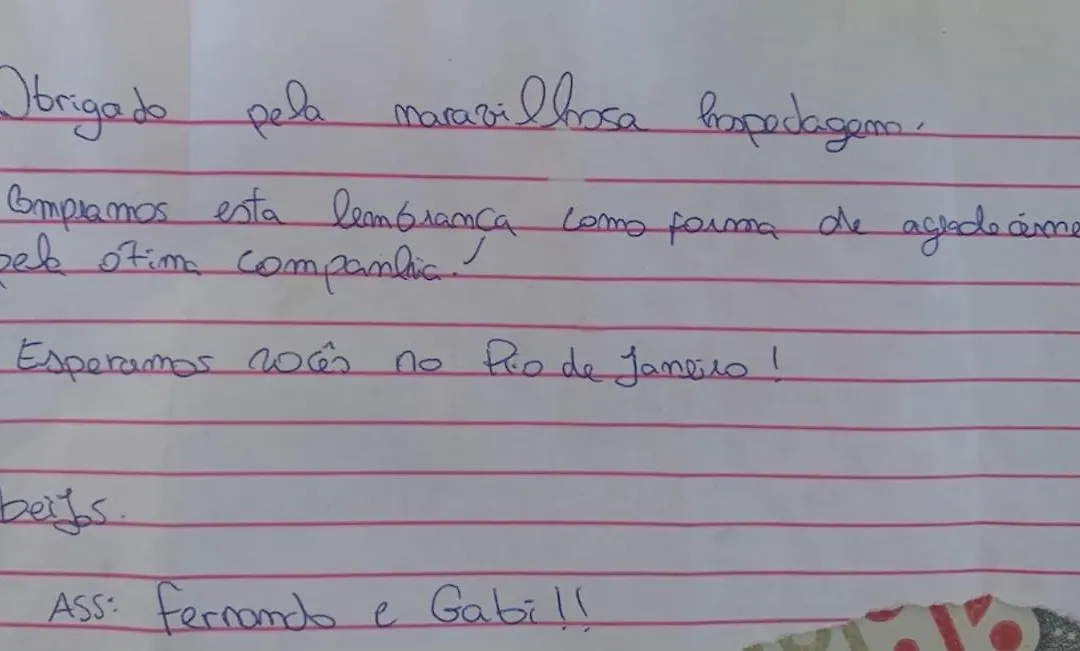 Obrigado pela maravilhosa hospedagem.
Compramos esta lembrança como forma de
pela ótima companhia!
Esperamos vocês no Rio de Janeiro!
beijos.
ASS: Fernando e Gabi!!